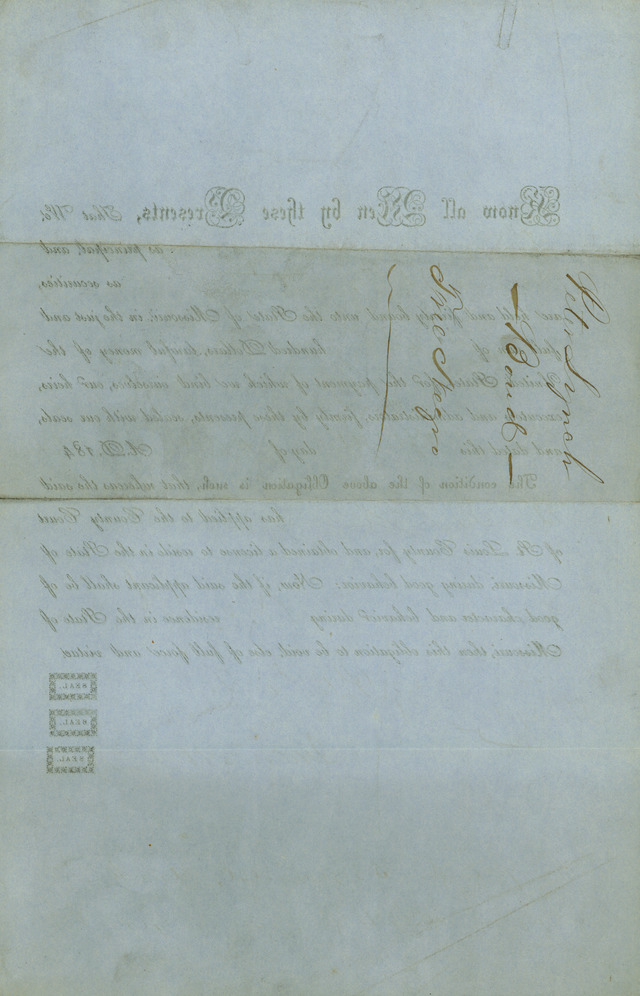 Peter Lynch
Bond
Free Negro
Know all Men by these Presents, That We
as principal, and
as securities,
are held and firmly bound unto the State of Missouri, in the just and
full sum of hundred Dollars, lawful money of the
United States, for the payment of which we bind ourselves, our heirs,
executors and administrators, firmly by these presents, sealed with our seals,
and dated this day of A. D. 184
The condition of the above Obligation is such, that whereas the said
has applied to the County Court
of St. Louis County for, and obtained a license to reside in the State of
Missouri, during good behavior: Now, if the said applicant shall be of
good character and behavior during residence in the State of
Missouri, then this obligation to be void, else of full force and virtue.
SEAL.
SEAL.
SEAL.